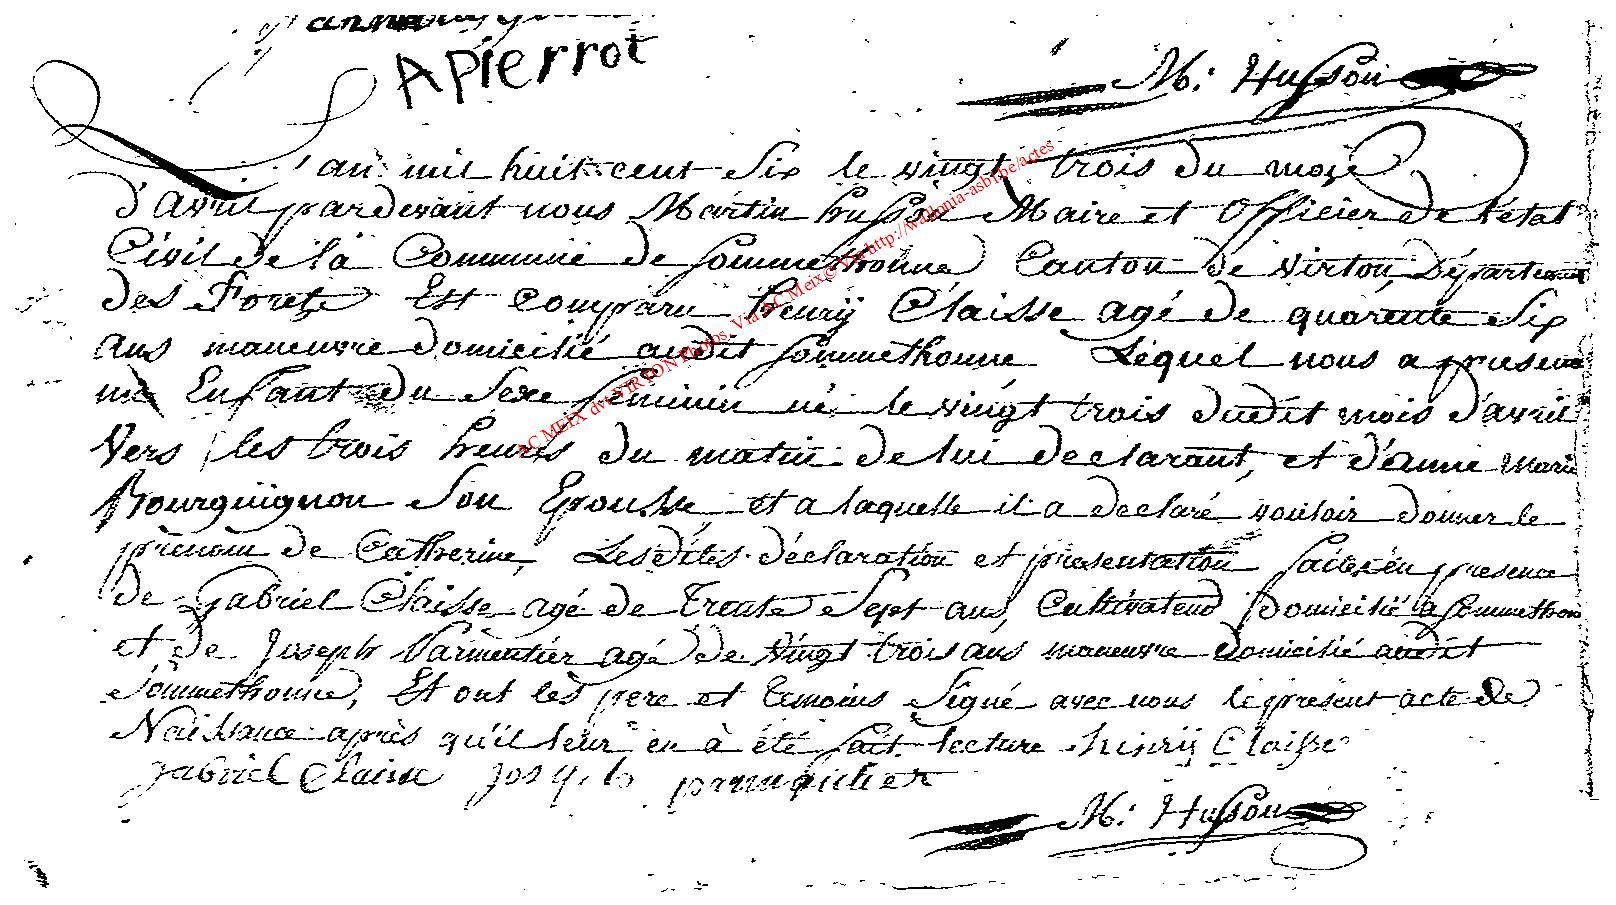 APierrot
M: Husson
L'an mil huit cent Six le vingt trois du mois
d'Avril pardevant nous Martin husson Maire et Officier de l'état
Civil de la Commune de Sommethonne Canton de Virton, Département
des Forets Est comparu henrÿ Claisse agé de quarente Six
ans maneuvre domicilié audit Sommethonne Lequel nous a presenté
un Enfant du Sexe feminin né le vingt trois dudit mois d'avril
Vers les trois heures du matin de lui declarant, et d'anne marie
Bourguignon Son Epousse et a laquelle il a declaré vouloir donner le
prénom de Catherine, Lesdites déclaration et presentation faites en presence
de Gabriel Claisse agé de Trente Sept ans, Cultivateur Domicilié a Sommethonne
et de Joseph Parmentier agé de Vingt trois ans maneuvre domicilié audit
Sommethonne, Et ont les pere et temoins Signé avec nous le present acte de
Naissance après qu'il leur en à été fait lecture henrij Claisse
gabriel Claisse joseph parmentier
M: Husson
AC MEIX dvt VIRTON Photos. Via AC Meix© Via http://wallonia-asbl.be/actes